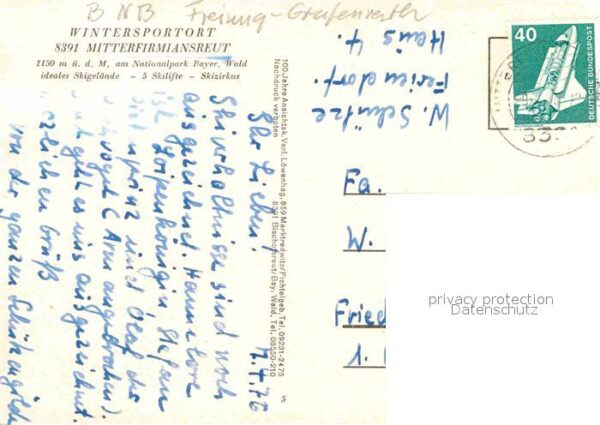 BNB Freiung-Grafenrath
WINTERSPORTORT
8391 MITTERFIRMIANSREUT
1150 m ü. d. M, am Nationalpark Bayer. Wald
ideales Skigelände - 5 Skilifte - Skizirkus
100 Jahre Ansichtsk. Verl. Löwenhag, 859 Marktredwitz/Fichtelgeb. Tel. 09231-2475
Nachdruck verboten 8391 Bischofsreut/Bay. Wald, Tel. 08550-210
5
7.4.76
Ihr Lieben,
Skiverhältnisse sind noch
ausgezeichnet. Hannelore
ist Loipenkönigin, Stefan
prinz und Olaf der
vogel (Arm angebrochen).
geht es uns ausgezeichnet.
Herzlichen Gruß
von der ganzen Schützengilde
W. Schütze
Feriendorf
Haus 4.
40
DEUTSCHE BUNDESPOST
Fa.
W.
Fried
1.
privacy protection
Datenschutz